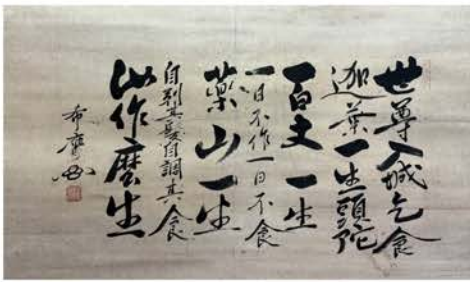 世尊入城乞食
迦葉一生頭陀
百丈一生
一日不作一日不食
薬山一生
自其髪自調其食
作麼生
希